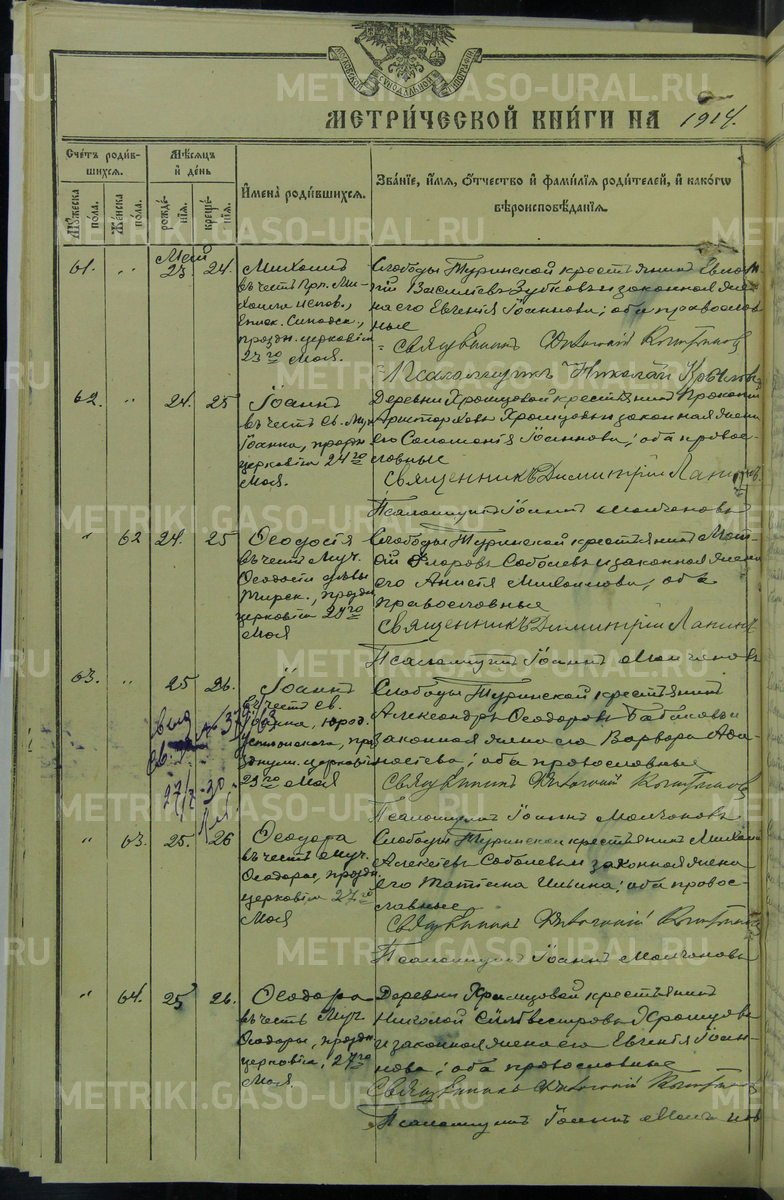 МОСКОВСКОЙ СѴНОДАЛЬНОЙ ТИПОГРАФІИ
МЕТРИ́ЧЕСКОЙ КНИ́ГИ НА 1914.
Счетъ роди́в-
шихся.
Мѣсяцъ
и день
Имена̀ роди́вшихся.
Зва́нїе, и́мя, ѻ҆́тчество и҆ фами́лїя роди́телей, и҆ како́гѡ
вѣроисповѣ́данїѧ.
Мужеска
пола.
Женска
пола.
рожде-
нія.
креще-
нія.
Май
61. " 23. 24.
Михаилъ
въ честь Прп. Ми-
хаила испов.,
Еписк. Синадск.,
праздн. церковію
23го Мая.
Слободы Туринской крестьянинъ
Васильевъ Зубковъ и законная же-
на его Евгенія Іоаннова; оба православ-
ные
Священникъ
Псаломщикъ Николай
62. " 24. 25
Іоаннъ
въ честь Св. Муч.
Іоанна, праздн.
церковію 24го
Мая.
Деревни Храмцовой крестьянинъ Прокопій
Аристарховъ Храмцовъ и законная жена
его Соломонія Іоаннова; оба правос-
лавные
Священникъ Димитрій Лапинъ
Псаломщикъ Іоаннъ Молчановъ
" 62 24. 25
Ѳеодосія
въ честь Муч.
Ѳеодосіи дѣвы
Тирск., праздн.
церковію 29го
Мая
Слободы Туринской крестьянинъ Мат-
ѳій Флоровъ Соболевъ и законная жена
его Анисія Михаилова; оба
православные
Священникъ Димитрій Лапинъ
Псаломщикъ Іоаннъ Молчановъ
63. " 25 26.
Іоаннъ
въ честь Св.
Іоанна, Юрод.
Устюжскаго, пра-
зднуем. церковію
29го Мая
Слободы Туринской крестьянинъ
Александръ Ѳеодоровъ Бабаковъ и
законная жена его Варвара Аѳа-
насіева; оба православные
Священникъ
Псаломщикъ Іоаннъ Молчановъ
" 63. 25. 26
Ѳеодора
въ честь Муч.
Ѳеодоры, праздн.
церковію 27го
Мая
Слободы Туринской крестьянинъ Михаилъ
Алексіевъ Соболевъ и законная жена
его Татіана Ильина; оба правос-
лавные
Священникъ
Псаломщикъ Іоаннъ Молчановъ
" 64. 25 26.
Ѳеодора
въ честь Муч.
Ѳеодоры, праздн.
церковію, 27го
Мая.
Деревни Храмцовой крестьянинъ
Николай Сильвестровъ Храмцовъ
и законная жена его Евгенія Іоан-
нова; оба православные
Священникъ
Псаломщикъ Іоаннъ Молчановъ
METRIKI.GASO-URAL.RU